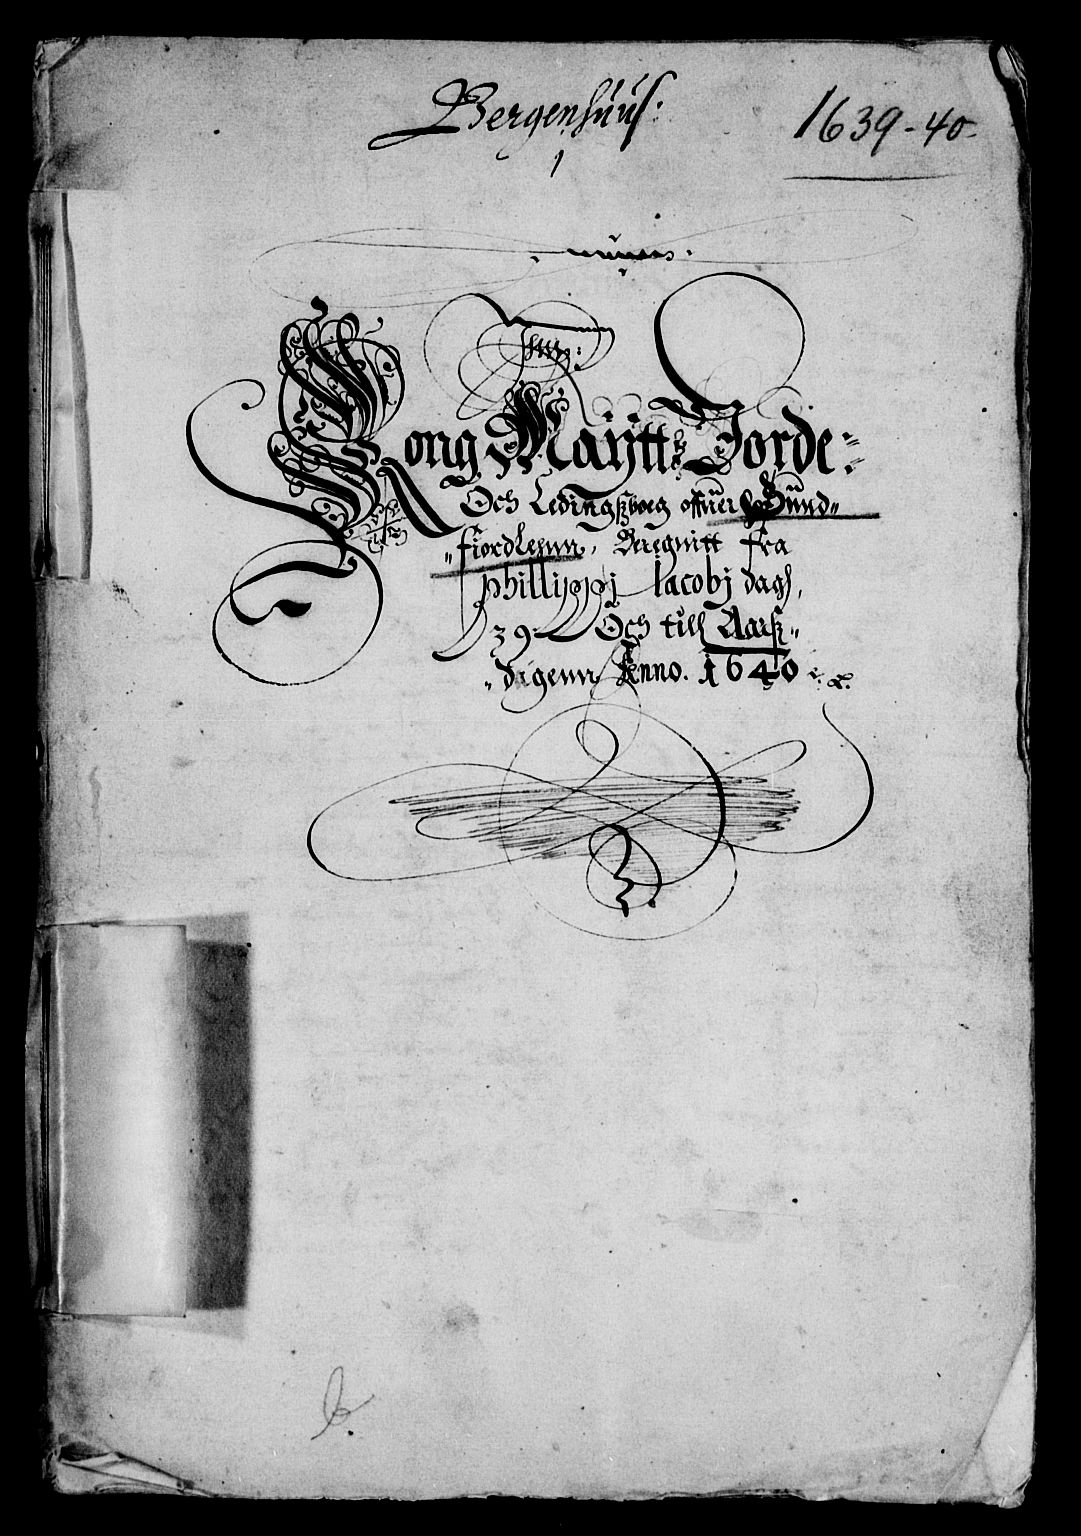 Bergenhuus: 1639-40.
1
Kong Maÿtts Jorde=
Och Ledingsboeg offuer Sund=
fiordLehnn, Beregnitt fra
Phillippj Jacobj dagh,
39: Och till Aarsz
dagenn Anno. 1640 :